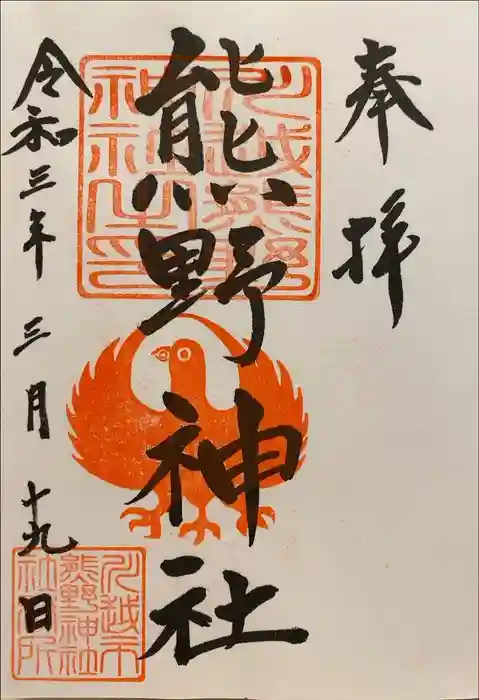 奉拝
熊野神社
川越熊野神社之印
令和三年三月十九日
川越市熊野神社社務所